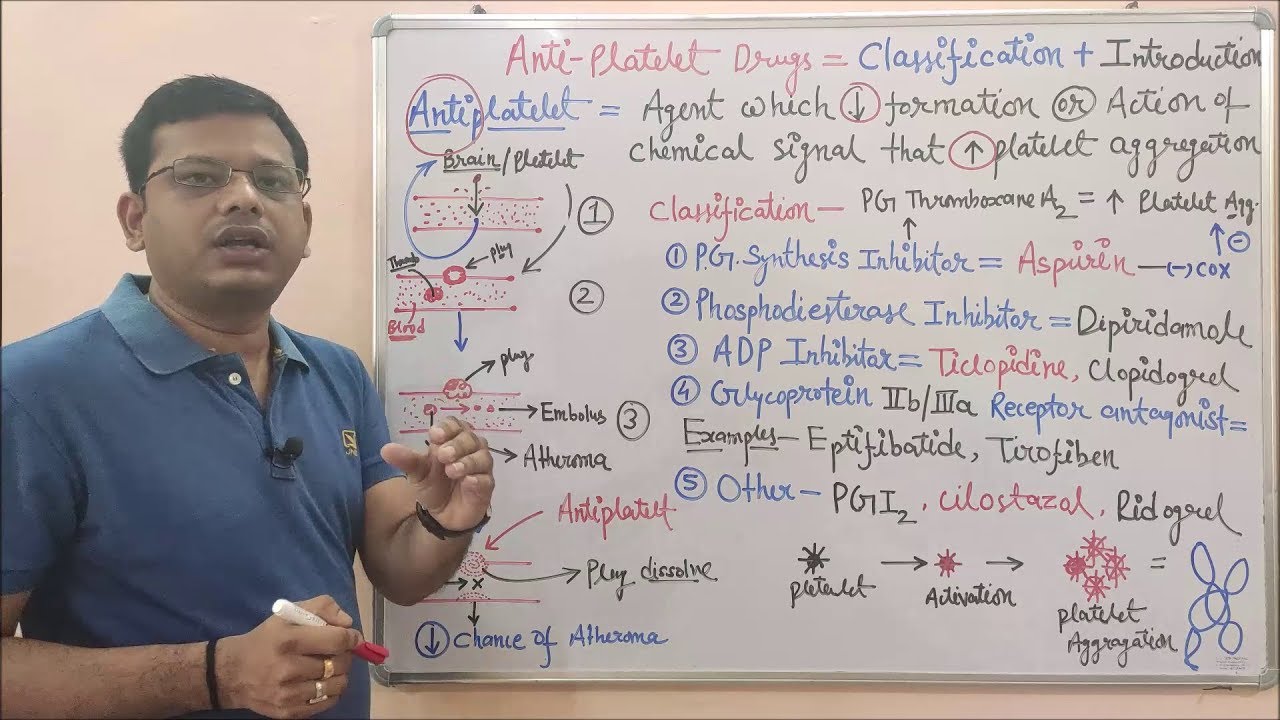 Anti-Platelet Drugs = Classification + Introduction
Antiplatelet = Agent which ↓ formation or Action of
chemical signal that ↑ platelet aggregation
Brain/Pletelet
①
plug
②
Blood
plug
Embolus
③
Atheroma
Antiplatelt
Plug dissolve
↓ Chance of Atheroma
Classification — PG Thromboxane A2 = ↑ Platelet Agg.
① P.G. Synthesis Inhibitor = Aspirin — (-) COX
② Phosphodiesterase Inhibitor = Dipiridamole
③ ADP Inhibitor = Ticlopidine, Clopidogrel
④ Glycoprotein IIb/IIIa Receptor antagonist =
Examples — Eptifibatide, Tirofiben
⑤ Other — PGI2, Cilostazal, Ridogrel
pletelet → Activation → platelet Aggragation =